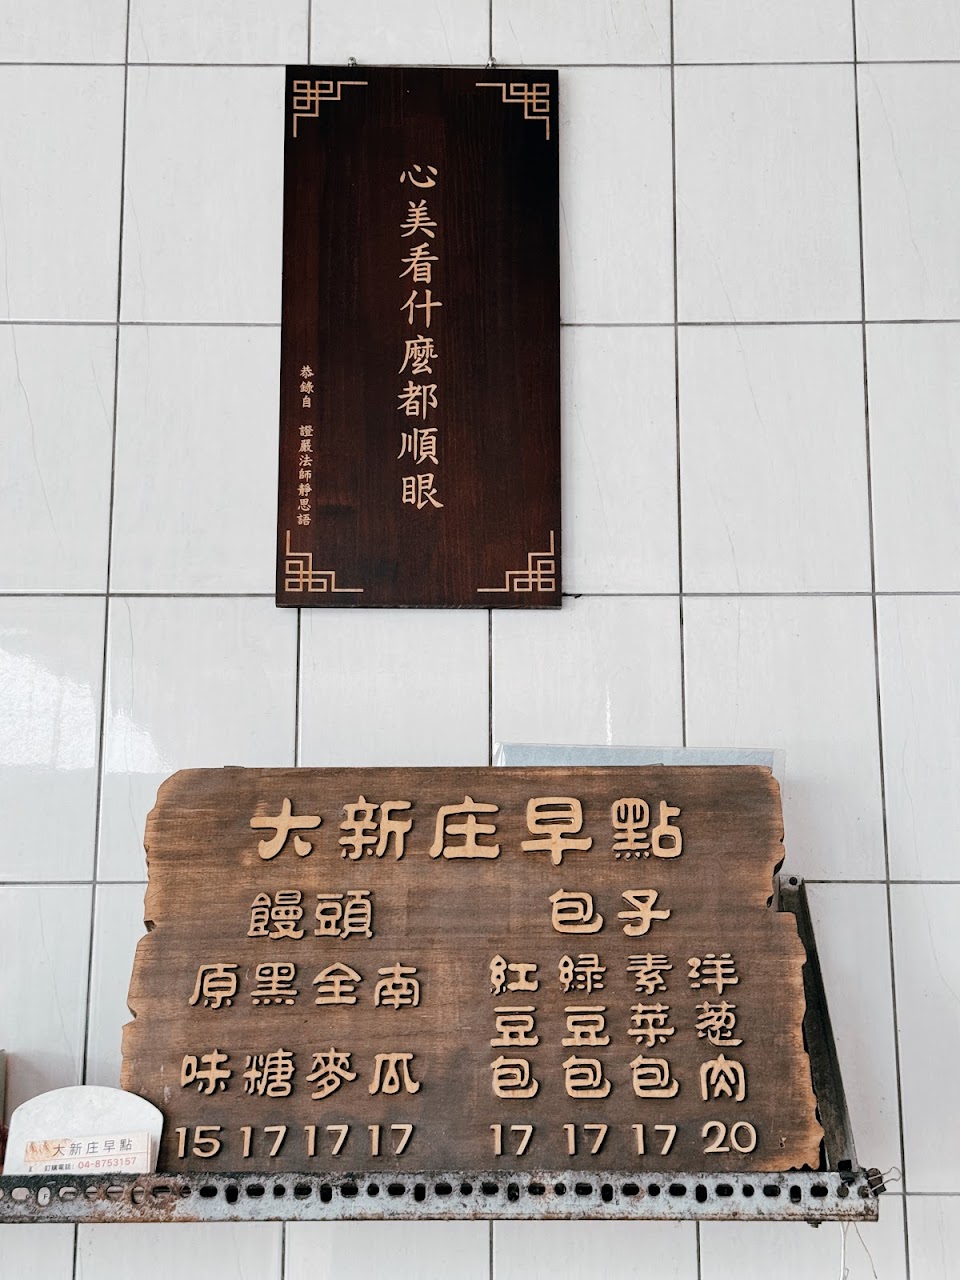 心美看什麼都順眼
恭錄自 證嚴法師靜思語
大新庄早點
饅頭
原味 15
黑糖 17
全麥 17
南瓜 17
包子
紅豆包 17
綠豆包 17
素菜包 17
洋葱肉 20
大新庄早點
訂購電話: 04-8753157